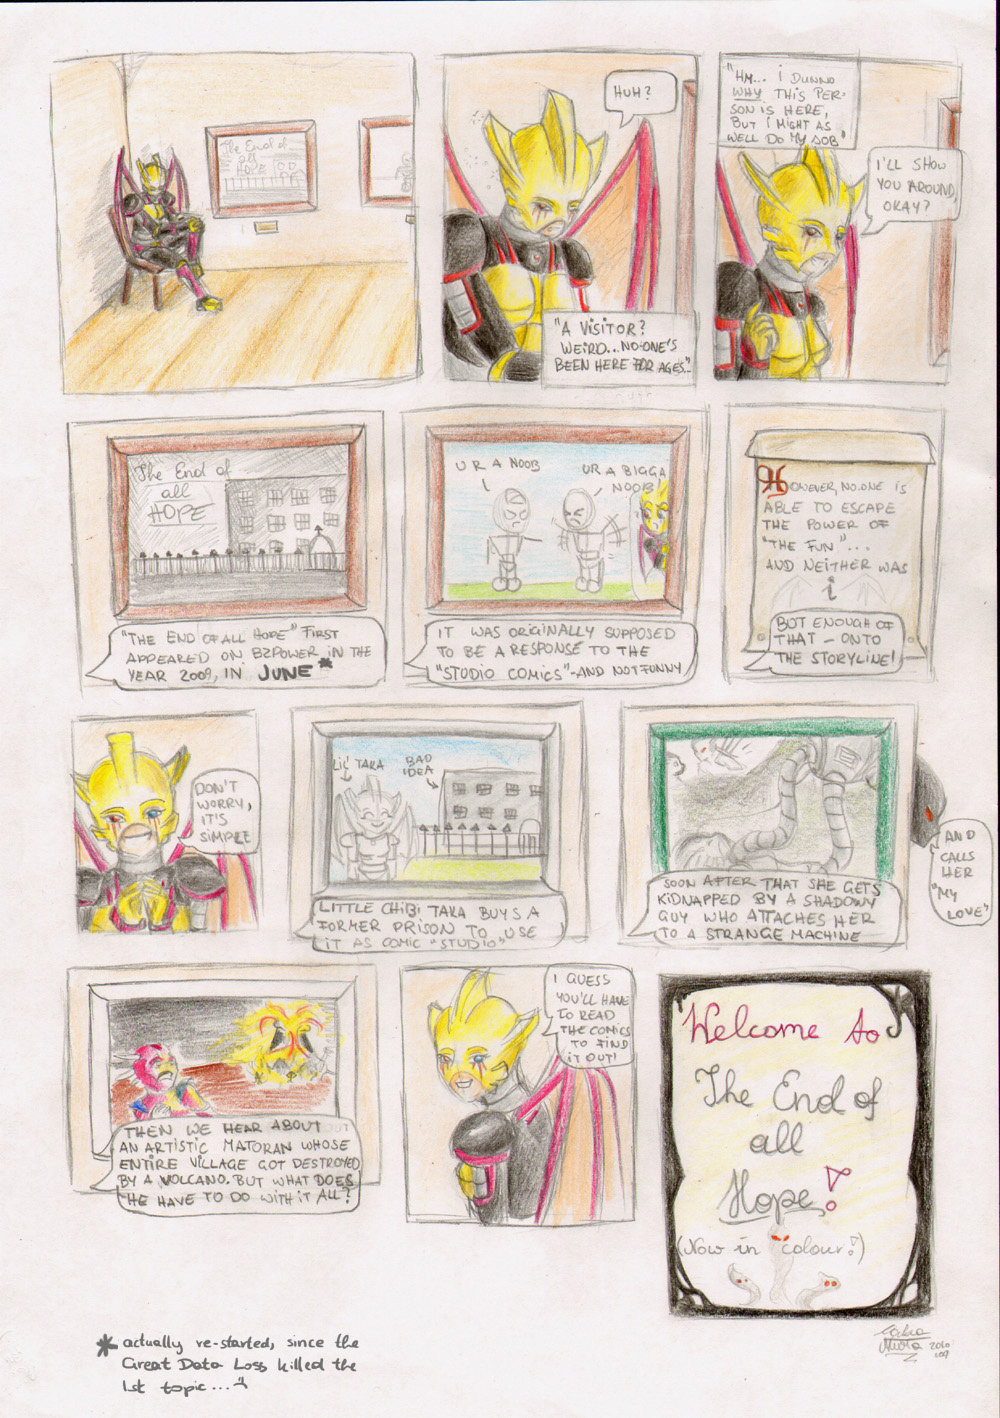 The End of
all
HOPE
HUH?
"A VISITOR?
WEIRD...NO-ONE'S
BEEN HERE FOR AGES."
"HM... I DUNNO
WHY THIS PER-
SON IS HERE,
BUT I MIGHT AS
WELL DO MY JOB"
I'LL SHOW
YOU AROUND,
OKAY?
The End of
all
HOPE
"THE END OF ALL HOPE" FIRST
APPEARED ON BZPOWER IN THE
YEAR 2009, IN JUNE*
U R A NOOB
UR A BIGGA
NOOB
IT WAS ORIGINALLY SUPPOSED
TO BE A RESPONSE TO THE
"STUDIO COMICS"-AND NOT FUNNY
HOWEVER, NO-ONE IS
ABLE TO ESCAPE
THE POWER OF
"THE FUN"...
AND NEITHER WAS
i
BUT ENOUGH OF
THAT - ONTO
THE STORYLINE!
DON'T
WORRY,
IT'S
SIMPLE
LIL' TAKA
BAD
IDEA
LITTLE CHIBI TAKA BUYS A
FORMER PRISON TO USE
IT AS COMIC "STUDIO"
SOON AFTER THAT SHE GETS
KIDNAPPED BY A SHADOWY
GUY WHO ATTACHES HER
TO A STRANGE MACHINE
AND
CALLS
HER
"MY
LOVE"
THEN WE HEAR ABOUT
AN ARTISTIC MATORAN WHOSE
ENTIRE VILLAGE GOT DESTROYED
BY A VOLCANO. BUT WHAT DOES
HE HAVE TO DO WITH IT ALL?
I GUESS
YOU'LL HAVE
TO READ
THE COMICS
TO FIND
IT OUT!
Welcome to
The End of
all
Hope!
(Now in colour!)
* actually re-started, since the
Great Data Loss killed the
1st topic...
2010